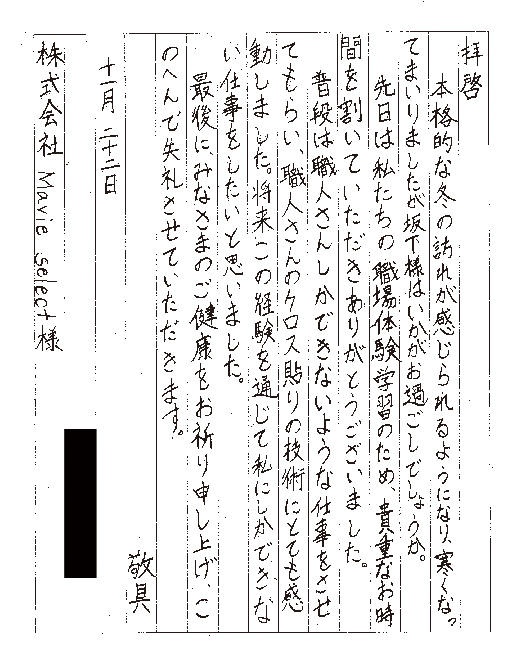 拝啓
本格的な冬の訪れが感じられるようになり、寒くなっ
てまいりましたが坂下様はいかがお過ごしでしょうか。
先日は私たちの職場体験学習のため、貴重なお時
間を割いていただきありがとうございました。
普段は職人さんしかできないような仕事をさせ
てもらい、職人さんのクロス貼りの技術にとても感
動しました。将来この経験を通じて私にしかできな
い仕事をしたいと思いました。
最後に、みなさまのご健康をお祈り申し上げ、こ
のへんで失礼させていただきます。
敬具
十一月二十二日
株式会社 Mavie select様